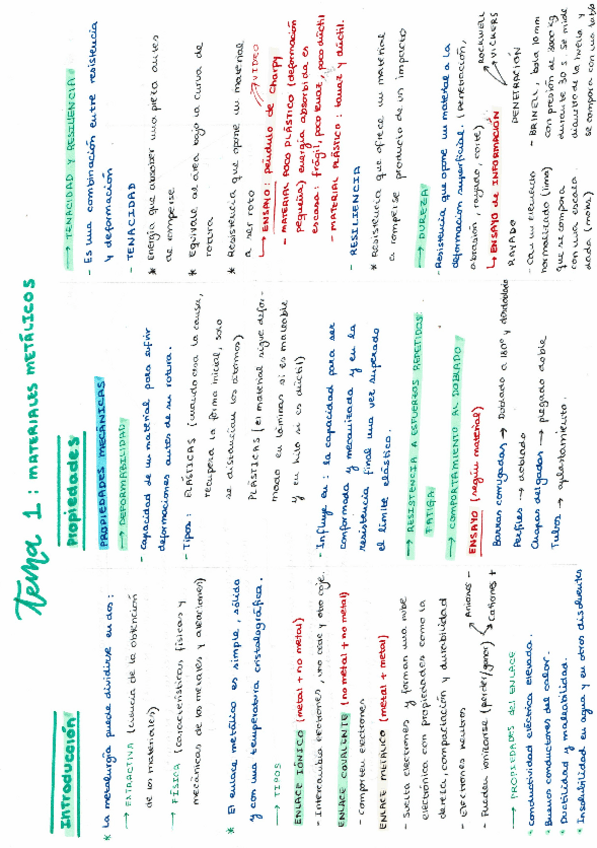 Tema 1: MATERIALES METÁLICOS
Introducción
* La metalurgia puede dividirse en dos:
→ EXTRACTIVA (ciencia de la obtención
de los materiales)
→ FÍSICA (características físicas y
mecánicas de los metales y aleaciones)
* El enlace metálico es simple, sólida
y con una temperatura cristalográfica.
→ TIPOS
ENLACE IÓNICO (metal + no metal)
- Intercambia electrones, uno cede y otro coge.
ENLACE COVALENTE (no metal + no metal)
- comparten electrones
ENLACE METÁLICO (metal + metal)
- Suelta electrones y forman una nube
electrónica con propiedades como la
dureza, compactación y durabilidad
- electrones neutros
- Pueden ionizarse (perder/ganar)
aniones -
cationes +
→ PROPIEDADES del ENLACE
* conductividad eléctrica elevada.
* Buenos conductores del calor.
* Ductilidad y maleabilidad.
* Insolubilidad en agua y en otros disolventes
Propiedades
PROPIEDADES MECÁNICAS
→ DEFORMABILIDAD
- capacidad de un material para sufrir
deformaciones antes de su rotura.
- Tipos: ELÁSTICAS (cuando cesa la causa,
recupera la forma inicial, solo
se distancian los átomos)
PLÁSTICAS (el material sigue defor-
mado en láminas si es maleable
y en hilo si es dúctil)
- Influye en: la capacidad para ser
conformada y mecanizada y en la
resistencia final una vez superado
el límite elástico.
→ RESISTENCIA A ESFUERZOS REPETIDOS:
FATIGA
→ COMPORTAMIENTO AL DOBLADO
ENSAYO (según material)
Barras corrugadas → Doblado a 180º y desdoblado
Perfiles → doblado
Chapas delgadas → plegado doble
Tubos → aplastamiento.
→ TENACIDAD Y RESILIENCIA
- Es una combinación entre resistencia
y deformación
- TENACIDAD
* Energía que absorber una pieza antes
de romperse
* Equivale al área bajo la curva de
rotura
* Resistencia que opone un material
a ser roto
VIDEO
↳ ENSAYO: péndulo de Charpy
- MATERIAL POCO PLÁSTICO (deformación
pequeña) energía absorbida es
escasa: frágil, poco tenaz, poco dúctil
- MATERIAL PLÁSTICO: tenaz y dúctil.
- RESILIENCIA
* Resistencia que ofrece un material
a romperse producto de un impacto
→ DUREZA
- Resistencia que opone un material a la
deformación superficial. (penetración,
abrasión, rayado, corte)
ROCKWELL
VICKERS
↳ ENSAYO de INFORMACIÓN
RAYADO
- Con un elemento
normalizado (lima)
que se compara
con una escala
dada (mohs)
PENETRACIÓN
- BRINELL, bola 10mm
con presión de 3000 kg
durante 30 s. se mide
diámetro de la huella y
se compara con una tabla